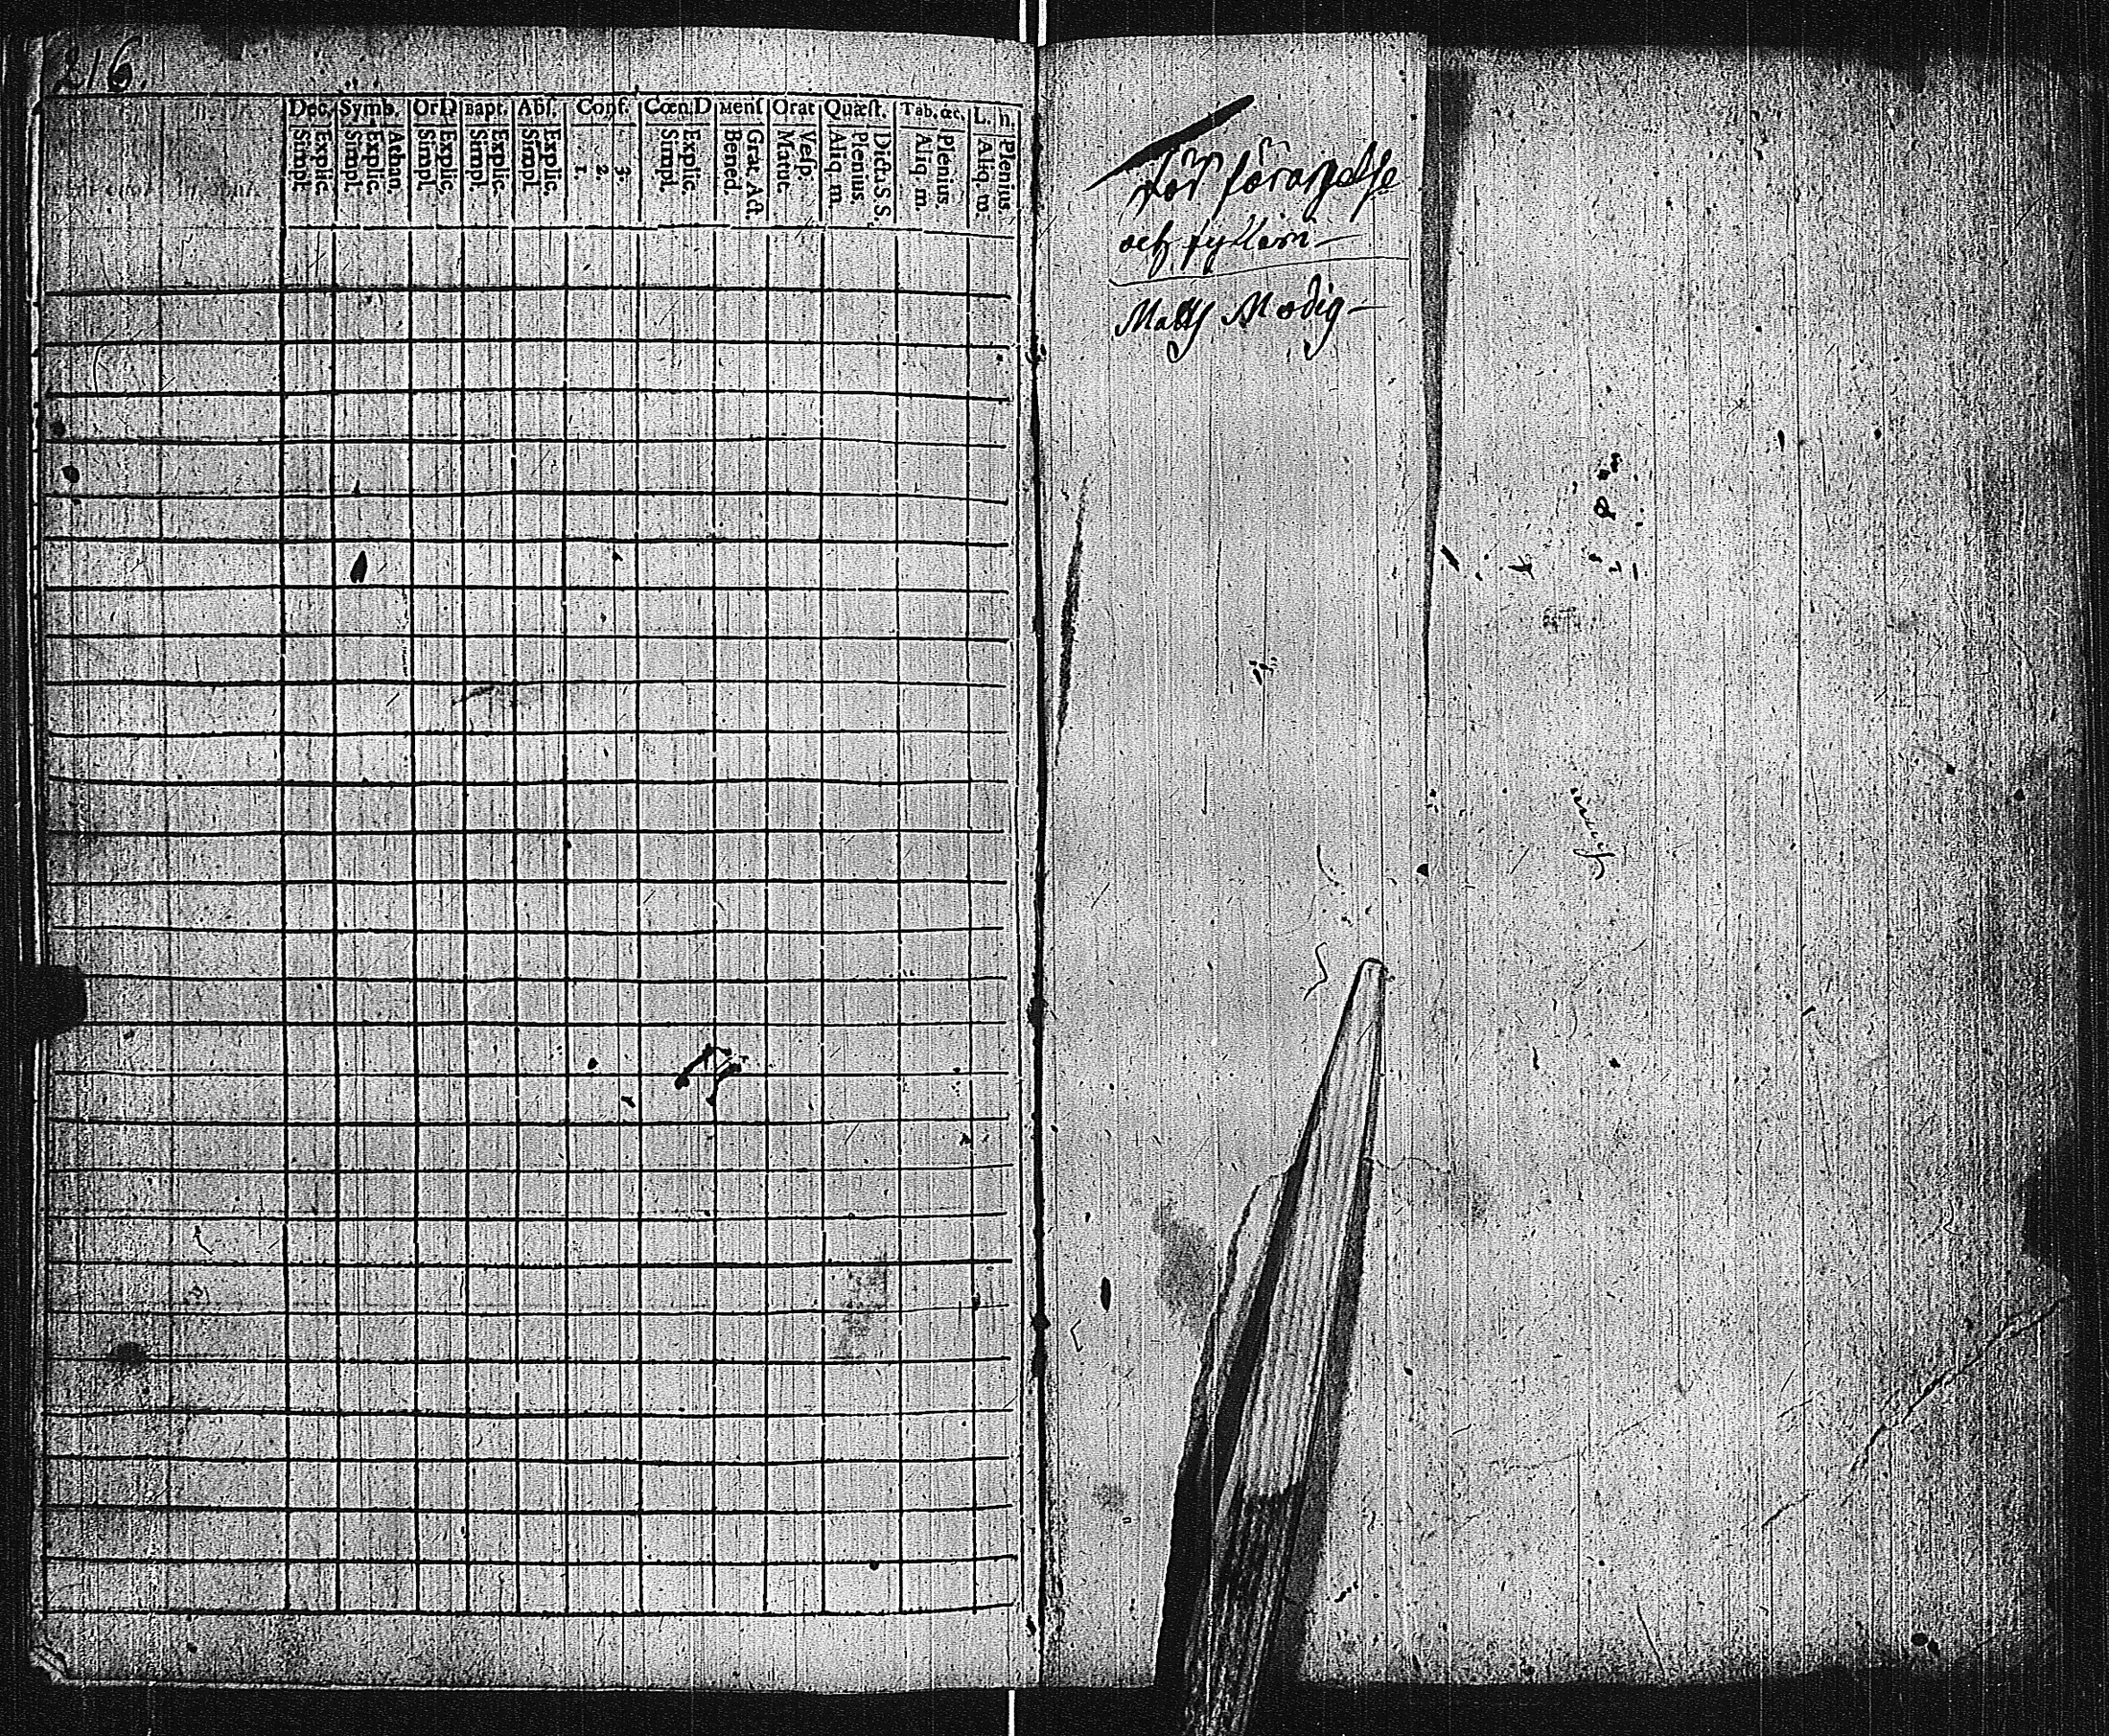 216.
Dec. Symb. Or D Bapt. Abſ. Conf. Cœn. D Menſ Orat Quæſt. Tab. œc. L. h.
Explic. Simpl.
Athan. Explic. Simpl.
Explic. Simpl.
Explic. Simpl.
Explic. Simpl.
3. 2. 1.
Explic. Simpl.
Grat. Act. Bened.
Veſp. Matut.
Dicta S. S. Plenius. Aliq. m.
Plenius. Aliq. m.
Plenius. Aliq. m.
För
och
Matts Modig